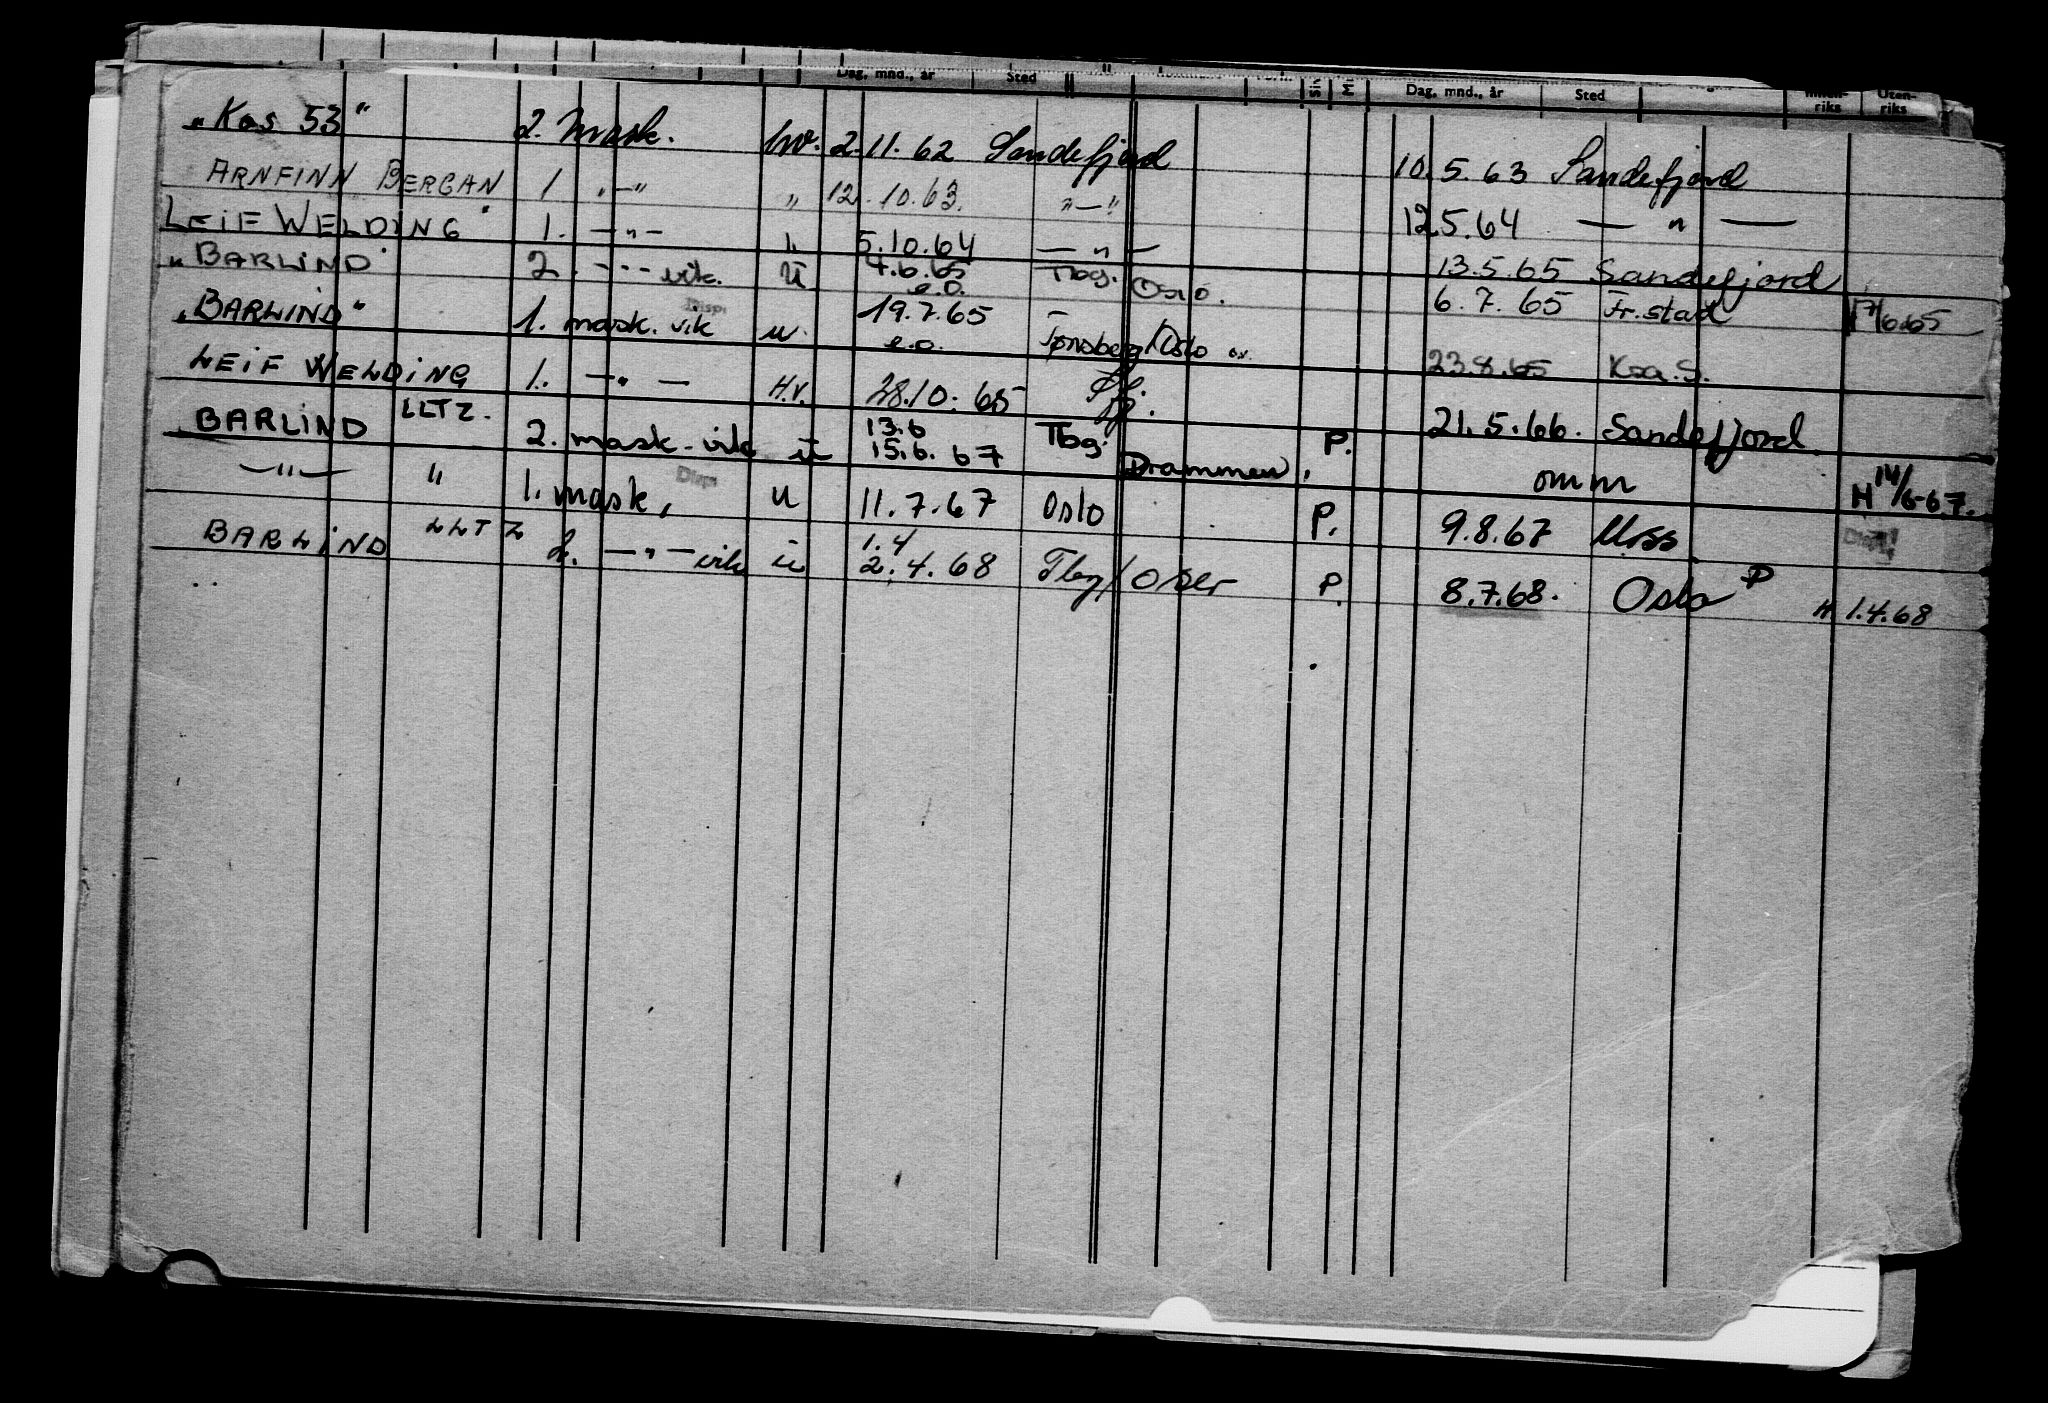 Dag, mnd., år Sted Dag, mnd., år Sted Innen-riks Uten-riks
"Kos 53" 2. mask. hv. 2.11.62 Sandefjord 10.5.63 Sandefjord
ARNFINN BERGAN 1 "—" " 12.10.63. "—" 12.5.64 — " —
LEIF WELDING" 1. —"— " 5.10.64 — " — 13.5.65 Sandefjord
"BARLIND" 2. --- vik. u 4.6.65 e.o. Tbg. Oslo. 6.7.65 Fr.stad 17/6.65
"BARLIND" 1. mask. vik Disp. u. 19.7.65 e.o. Tønsberg/Oslo 23.8.65 Kra.S.
LEIF WELDING 1. —"— H.V. 28.10.65 Sfj. 21.5.66. Sandefjord
BARLIND LLTZ. 2. mask. vik u 13.6 15.6.67 Tbg. Drammen, P. omm H 14/6-67.
—"— " 1. mask, Disp u 11.7.67 Oslo P. 9.8.67 Moss Disp.
BARLIND LLTZ 2. —"— vik u 1.4 2.4.68 Tbg/ P. 8.7.68. Oslo P H 1.4.68